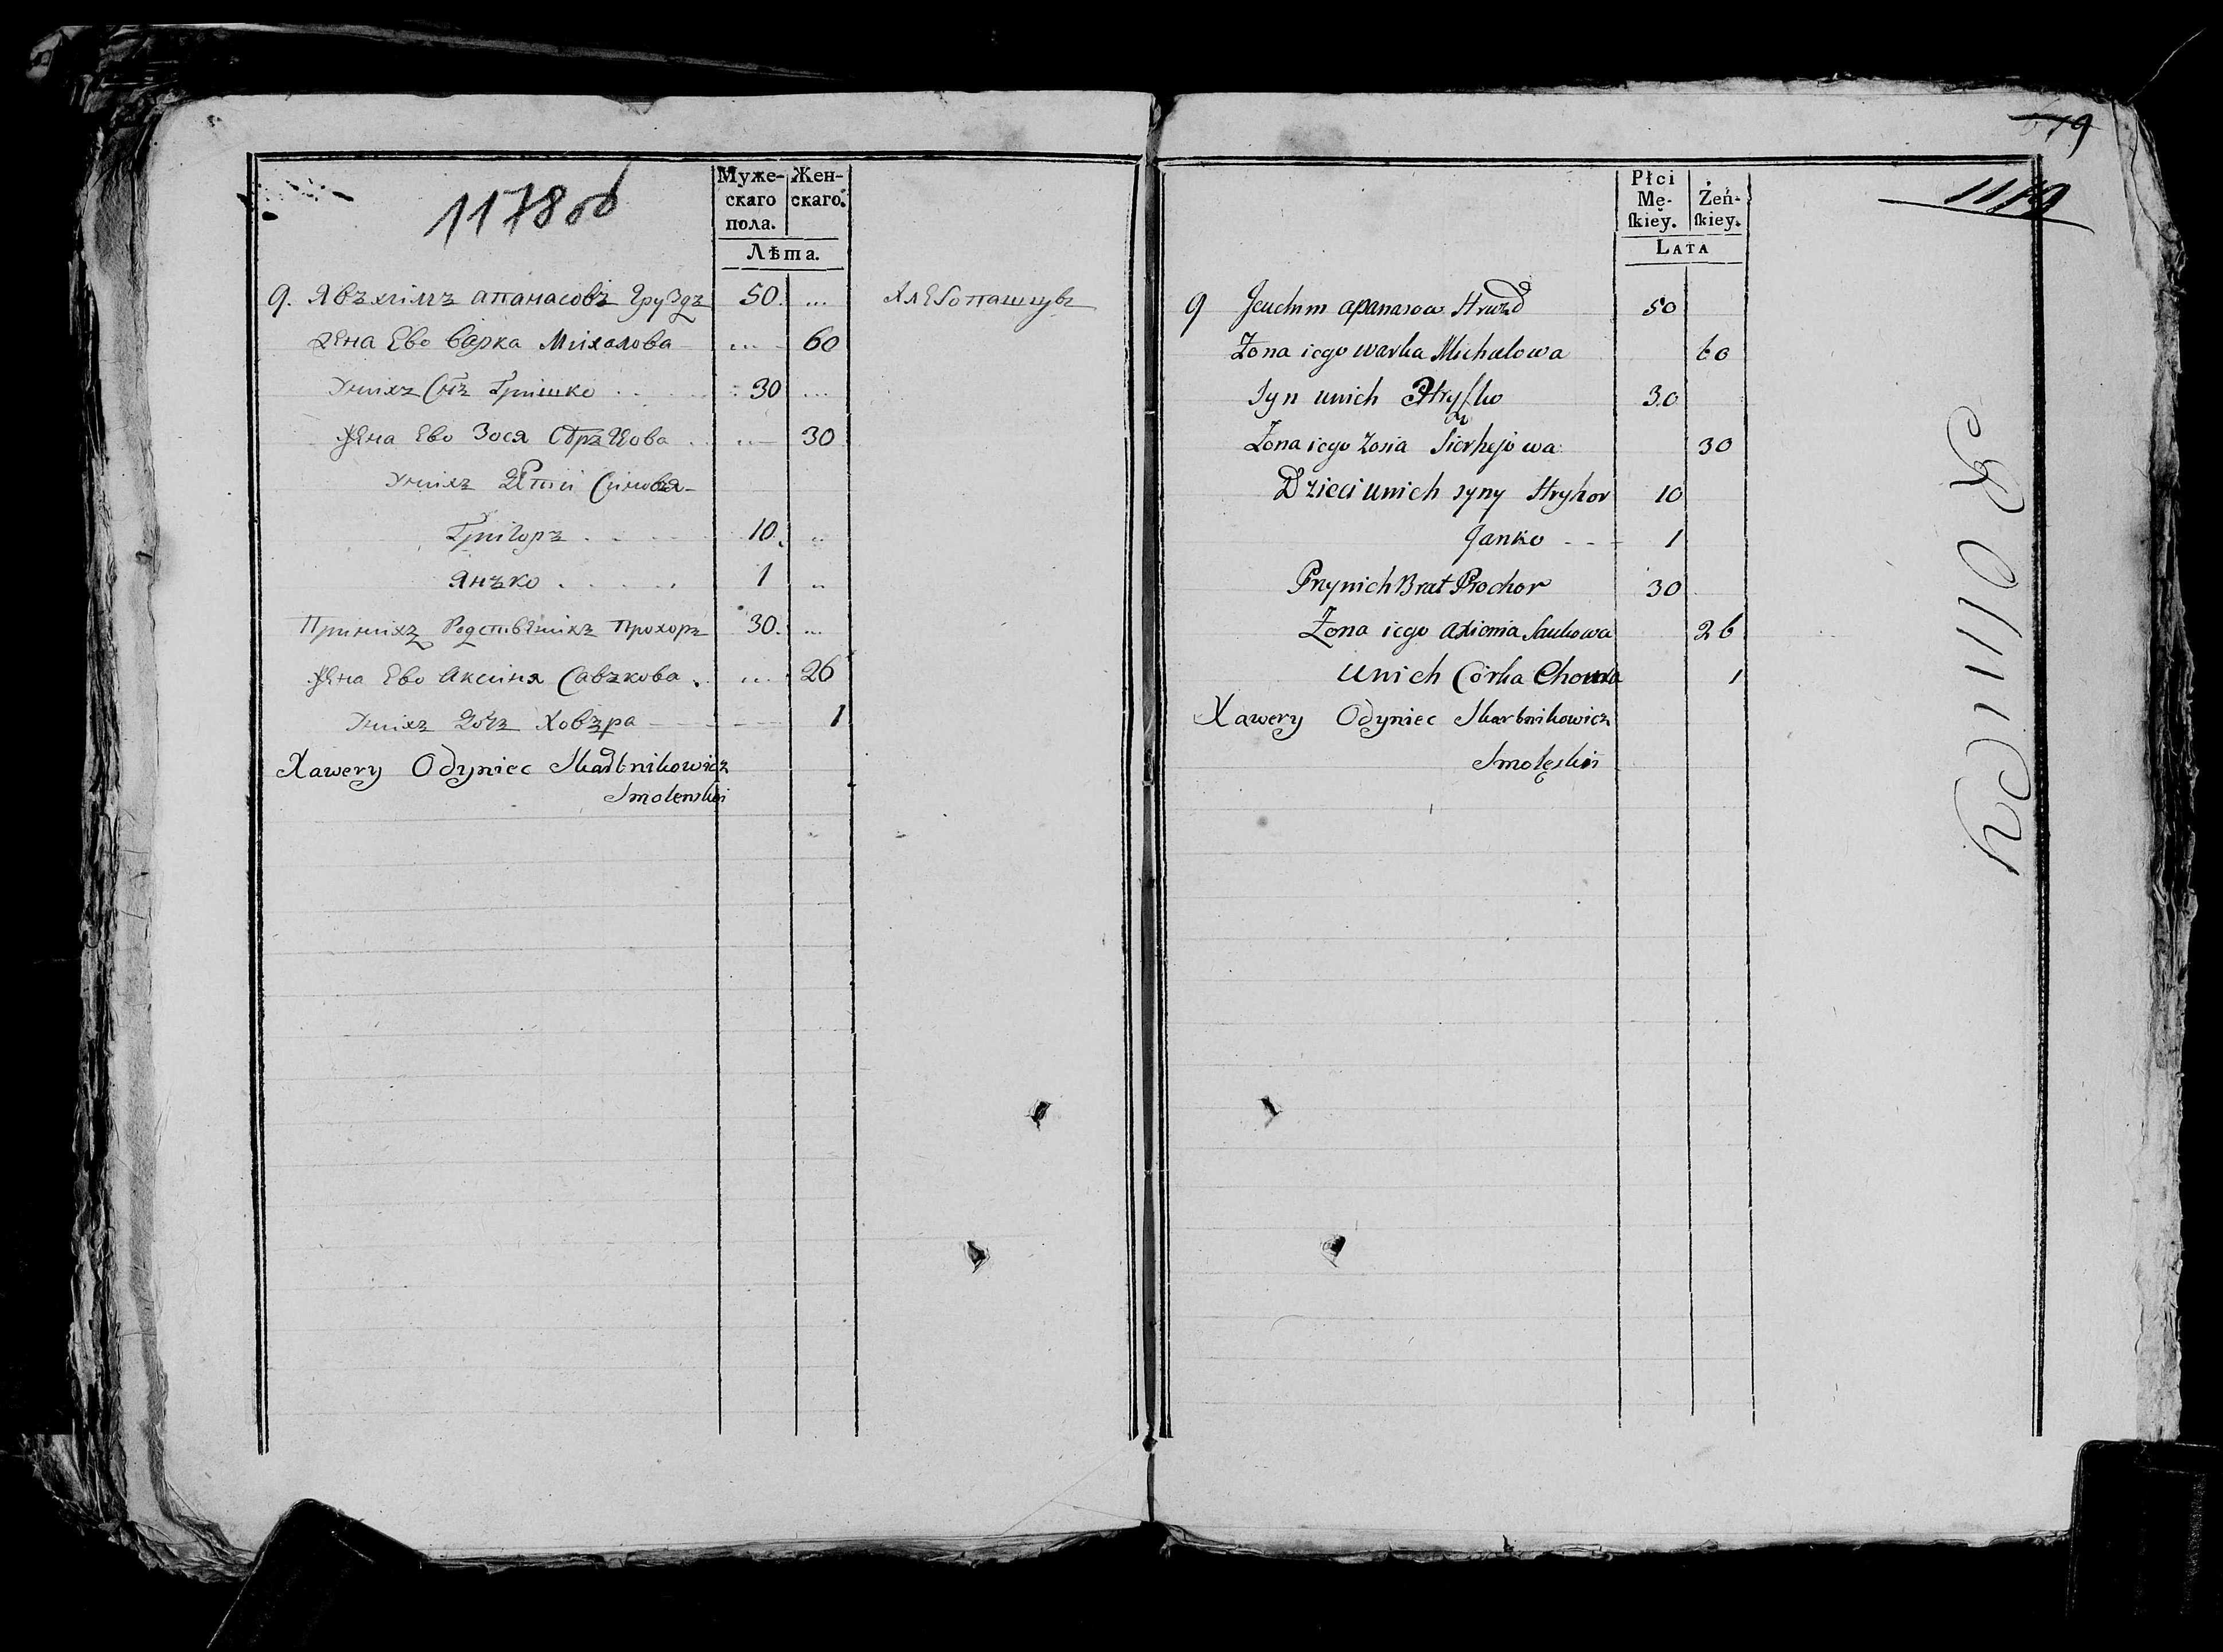 1178об
Муже-
скаго
пола.
Жен-
скаго.
Лѣта.
9. Явъхимъ апанасовъ Груздъ 50. ... Хлебопашцовъ
Жена Ево Варка Михалова ... 60
Уних Снъ Гришко . . 30 ...
Жена Ево Зося Сергѣева . ... 30
Унихъ Дети Синовя
Григоръ . . . 10. ..
Янъко . . . . . 1 ..
Принихъ Родственикъ Прохоръ 30. ...
Жена Ево Аксиня Савъкова . ... 26
Унихъ Дочъ Ховъра 1
Xawery Odyniec Skarbnikowicz
Smolenski
1179
Płci
Mę-
ſkiey.
Żeń-
ſkiey.
Lata
9 Jeuchim apanasow Hruzd 50
Żona iego warka Michalowa 60
Syn unich Hryſko 30
Żona iego Zosia Sierhejowa 30
Dzieci unich syny Hryhor 10
Janko - - - 1
Przynich Brat Prochor 30
Żona iego axionia Saukowa 26
unich Córka Chowra 1
Xawery Odyniec Skarbnikowicz
Smoleński